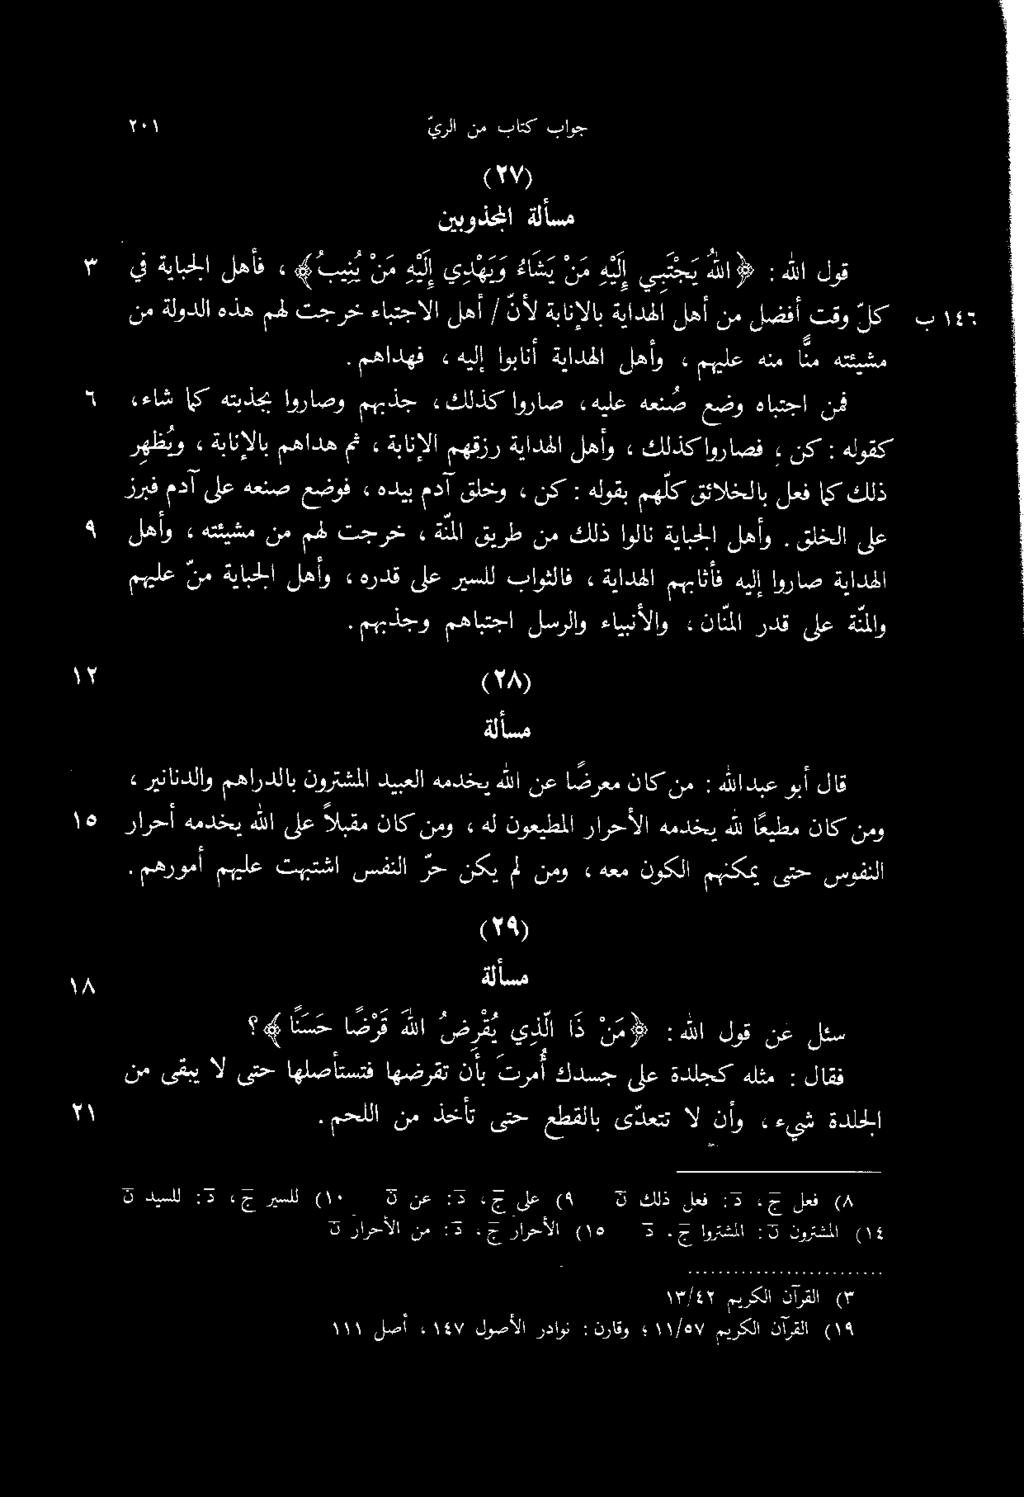 جواب كتاب من الريّ ٢٠١
(٢٧)
مسألة المجذوبين
قول الله : ﴿اللهُ يَجْتَبِي إِلَيْهِ مَنْ يَشَاءُ وَيَهْدِي إِلَيْهِ مَنْ يُنِيبُ﴾ ، فأهل الجباية في ٣
١٤٦ ب كلّ وقت أفضل من أهل الهداية بالإنابة لأنّ / أهل الاجتباء خرجت لهم هذه الدولة من
مشيئته منّاً منه عليهم ، وأهل الهداية أنابوا إليه ، فهداهم .
فمن اجتباه وضع صُنعه عليه ، صاروا كذلك ، جذبهم وصاروا بجذبته كما شاء ، ٦
كقوله : كن ؛ فصاروا كذلك ، وأهل الهداية رزقهم الإنابة ، ثم هداهم بالإنابة ، ويُظهِر
ذلك كما فعل بالخلائق كلّهم بقوله : كن ، وخلق آدم بيده ، فوضع صنعه على آدم فبرز
على الخلق . وأهل الجباية نالوا ذلك من طريق المنّة ، خرجت لهم من مشيئته ، وأهل ٩
الهداية صاروا إليه فأثابهم الهداية ، فالثواب للسير على قدره ، وأهل الجباية منّ عليهم
والمنّة على قدر المنّان ، والأنبياء والرسل اجتباهم وجذبهم .
(٢٨) ١٢
مسألة
قال أبو عبدالله : من كان معرضاً عن الله يخدمه العبيد المشترون بالدراهم والدنانير ،
ومن كان مطيعاً لله يخدمه الأحرار المطيعون له ، ومن كان مقبلاً على الله يخدمه أحرار ١٥
النفوس حتى يمكنهم الكون معه ، ومن لم يكن حرّ النفس اشتبهت عليهم أمورهم .
(٢٩)
مسألة ١٨
سئل عن قول الله : ﴿مَنْ ذَا الَّذِي يُقْرِضُ اللهَ قَرْضًا حَسَنًا﴾ ؟
فقال : مثله كجلدة على جسدك أُمرتَ بأن تقرضها فتستأصلها حتى لا يبقى من
الجلدة شيء ، وأن لا تتعدّى بالقطع حتى تأخذ من اللحم . ٢١
٨) فعل ج ، د : فعل ذلك ن ٩) على ج ، د : عن ن ١٠) للسير ج ، د : للسيد ن
١٤) المشترون ن : المشتروا ج ، د ١٥) الأحرار ج ، د : من الأحرار ن
٣) القرآن الكريم ١٣/٤٢
١٩) القرآن الكريم ١١/٥٧ ؛ وقارن : نوادر الأصول ١٤٧ ، أصل ١١١